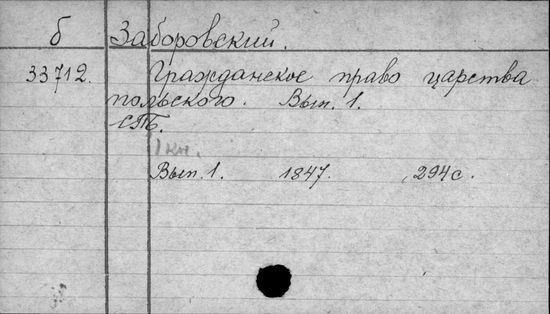 б Заборовский.
33712. Гражданское право царства
польского. Вып. 1.
СПБ.
1 кн.
Вып. 1. 1847. 294 с.